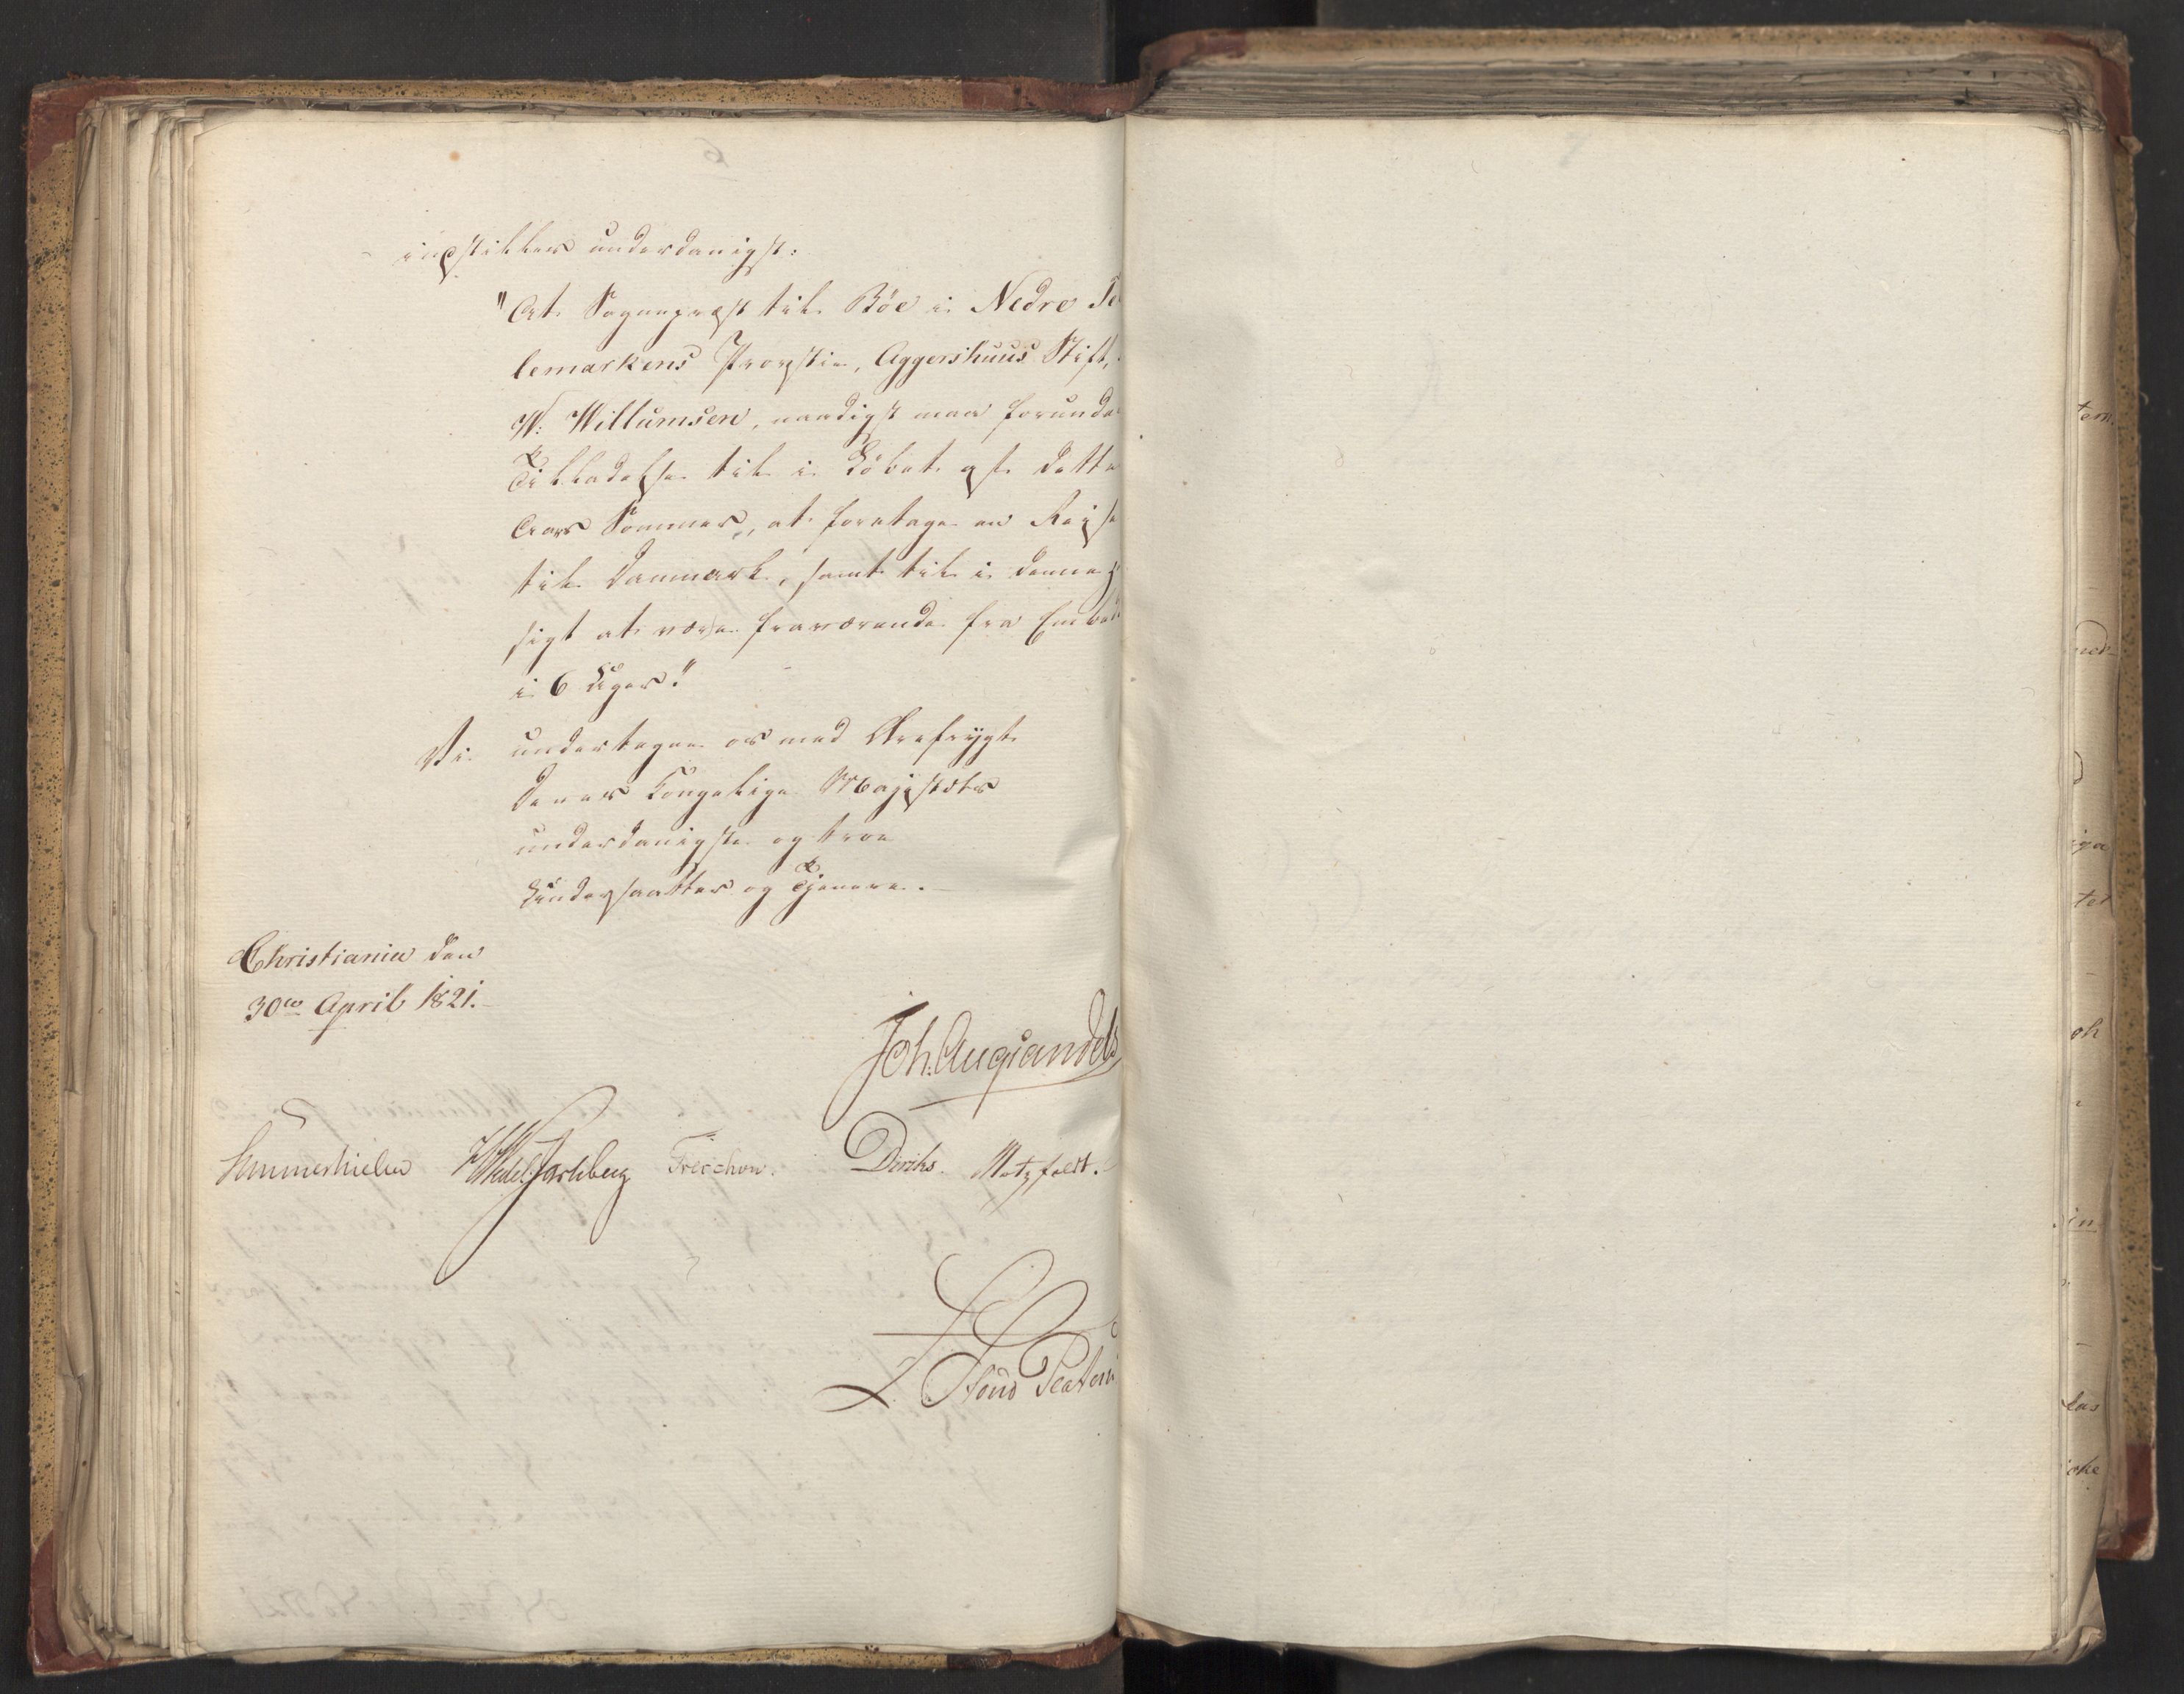 indstilles underdanigst:
"At Sogneprest til Böe i Nedre Te
lemarkens Provstie, Aggershuus Stift,
W: Willumsen, naadigst maa forunde
Tilladelse til i Löbet af dette
Aars Sommer, at foretage en Reise
til Danmark, samt til i denne
sigt at være fraværende fra Embed
i 6 Uger."
Vi undertegne os med Ærefrygt
Deres Kongelige Majestæts
underdanigste og troe
Undersaatter og Tjenere.
Christiania den
30te April 1821.
Joh. Aug Sandels
Sommerhielm HWedel Jarlsberg Treschow. Diriks. Motzfeldt.